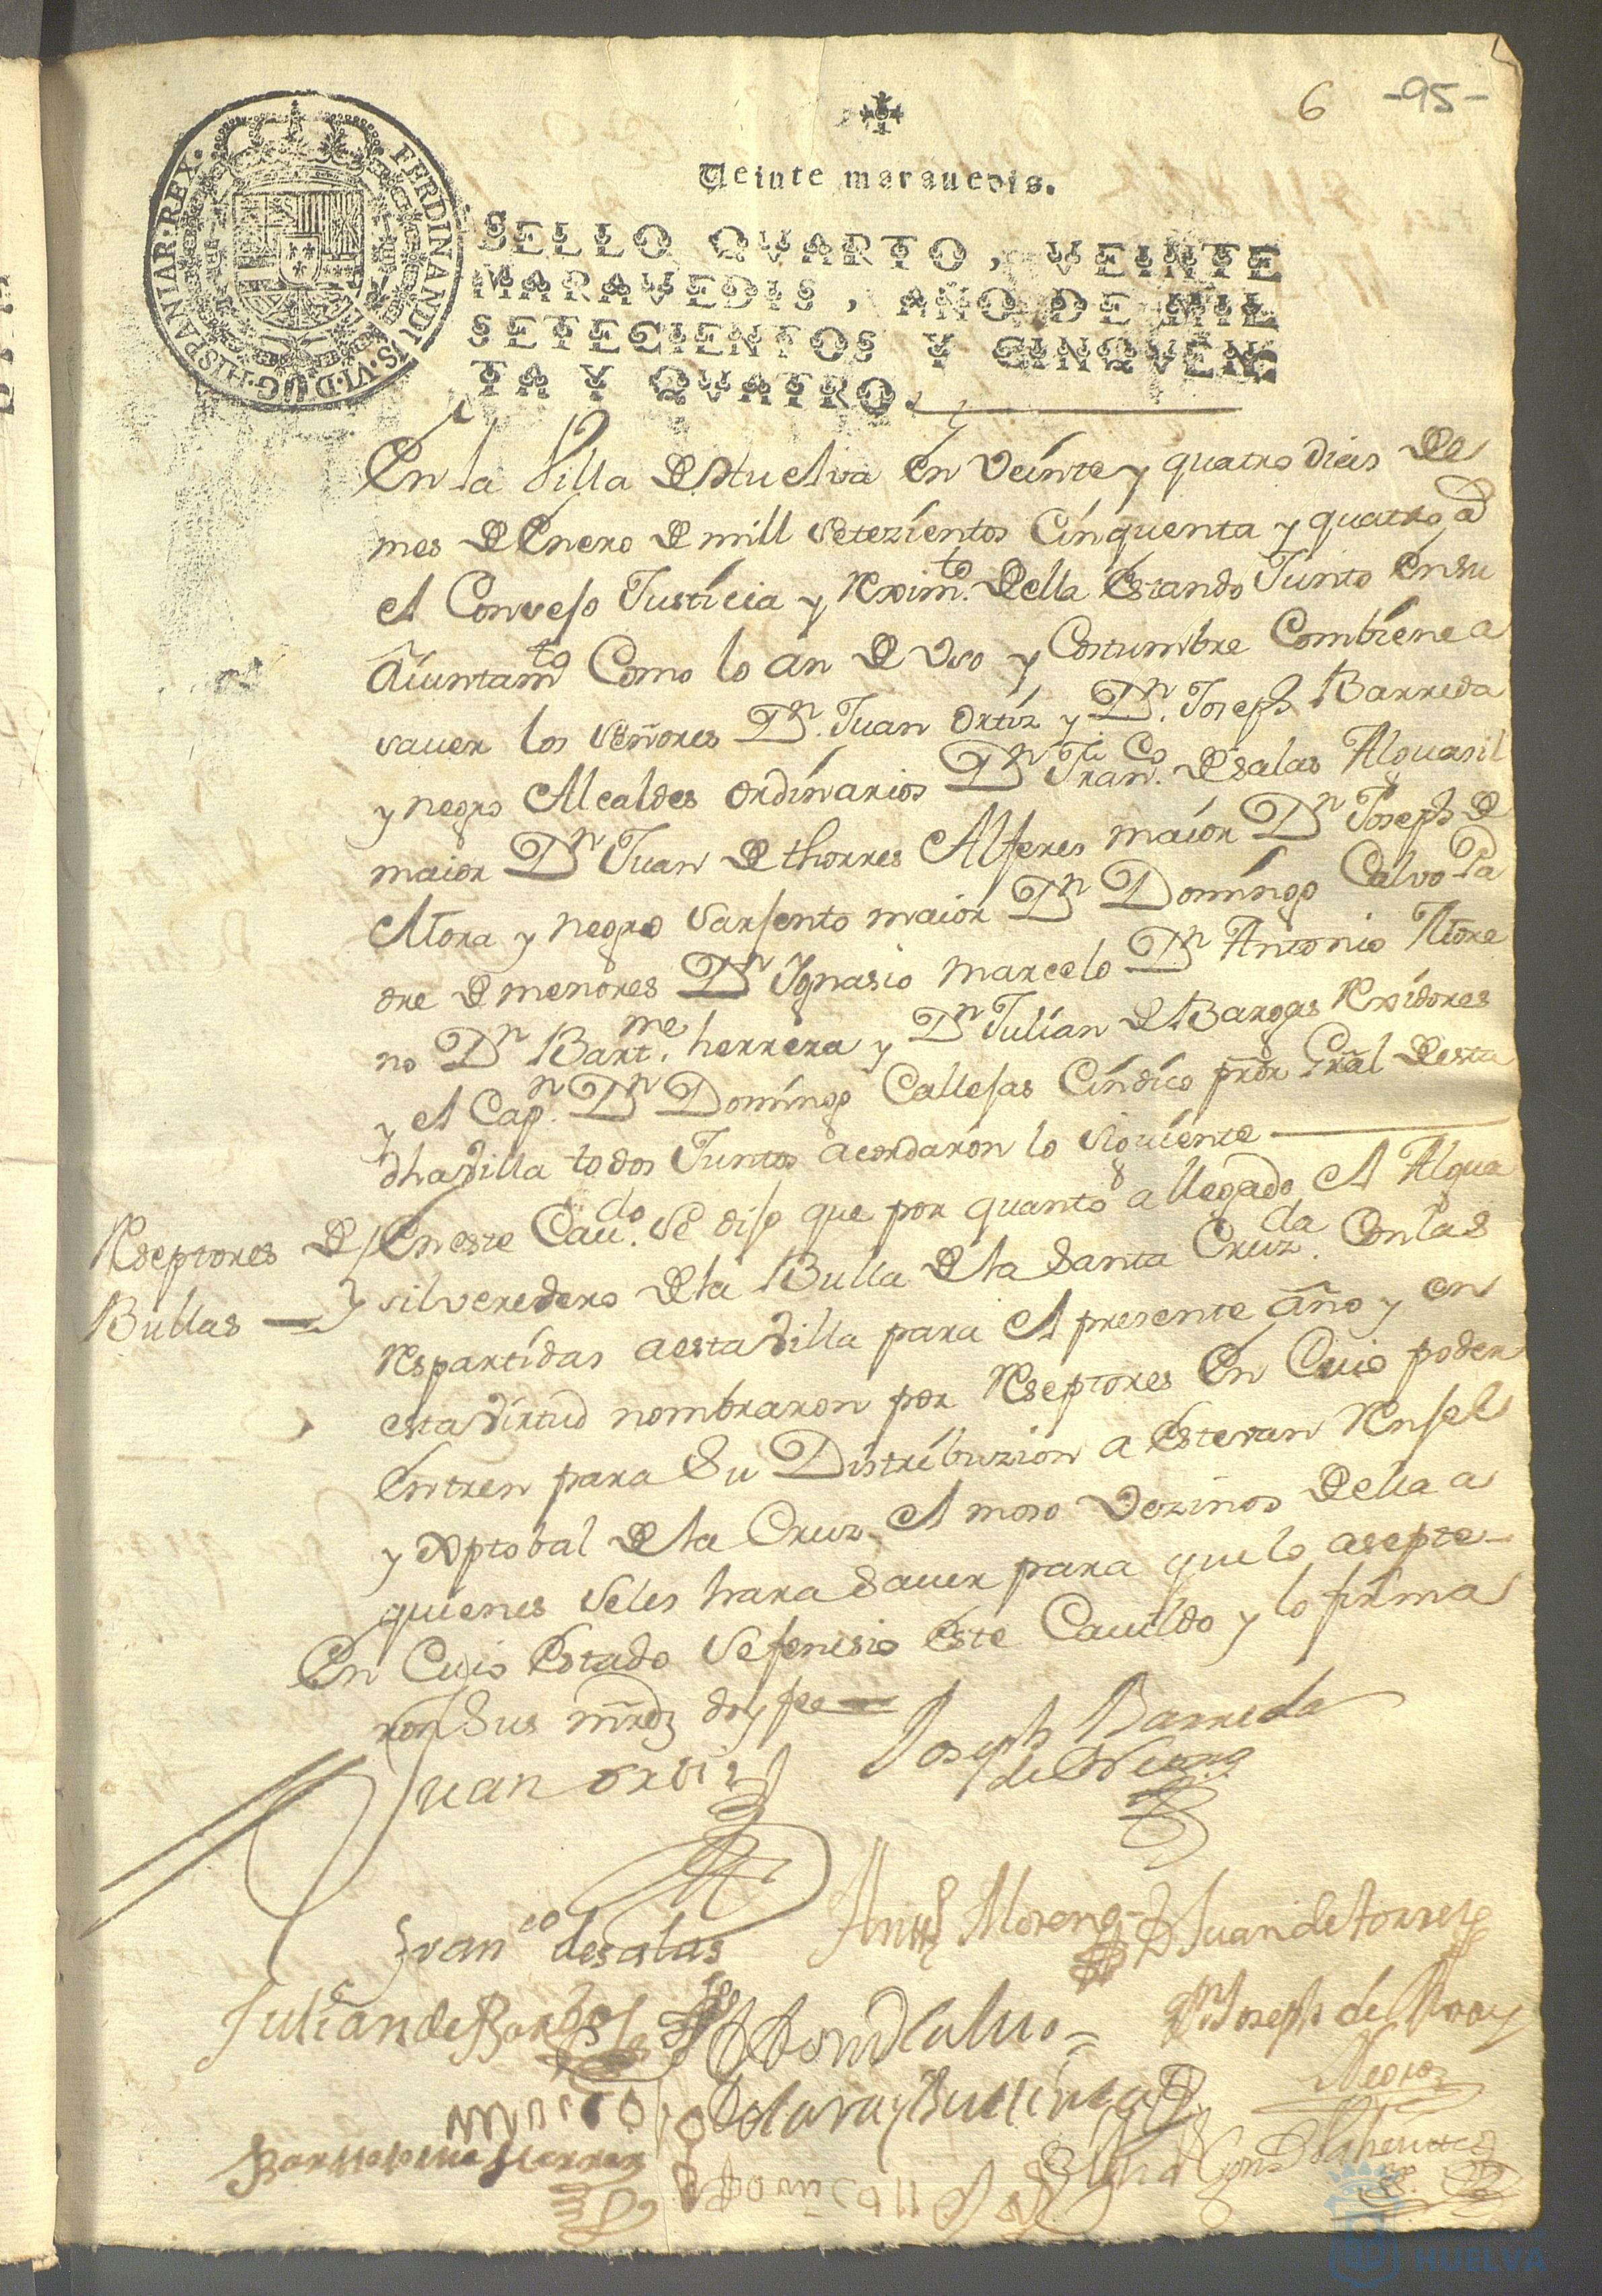 6 -95-
Veinte maravedis.
FERDINANDUS·VI·D·G·HISPANIAR·REX·
SELLO QVARTO, VEINTE
MARAVEDIS, AÑO DE MIL
SETECIENTOS Y CINQVEN
TA Y QVATRO.
En la Villa de Huelva en veinte y quatro dias de
mes de Enero de mill setezientos cinquenta y quatro a
el Consejo Justicia y Reximto. della estando Junto en su
Aiuntamto Como lo an de uso y Costumbre Combiene a
saver los señores Dn. Juan Ortiz y Dn. Joseph Barreda
y negro Alcaldes ordinarios Dn Franco. de salas Alguasil
maior Dn Juan de thorres Alferes maior Dn Joseph de
Mora y negro sarjento maior Dn Domingo Calvo Pa
dre de menores Dn Ignasio marcelo Dn Antonio More
no Dn Bartme. herrera y Dn Julian de Bargas Rexidores
y el Capn. Dn Domingo Callejas Cindico prôr Grâl desta
dha villa todos Juntos acordaron lo siguiente
Reseptores de Bullas
En este Caudo. se dijo que por quanto a llegado el Algua
sil veredero de la Bulla de la Santa Cruzda. Con las
Respartidas a esta Villa para el presente año y en
esta virtud nombraron por Reseptores en Cuio poder
entren para su Distribuzion a Estevan Renjel
y Xptobal de la Cruz el moso vezinos della a
quienes se les hara saver para que lo asepte
En Cuio Estado se fenesio este Cavildo y lo firma
ron sus mrdz doy fee
Juan ortiz
Joseph Barreda
de Negro
Franco de salas
Antt Moreno
Juan de torres
Julian de Bargas
Domo Calvo
Dn Joseph de Mora y
Negro
Bartholome Herrera
Dom Callejas
HUELVA